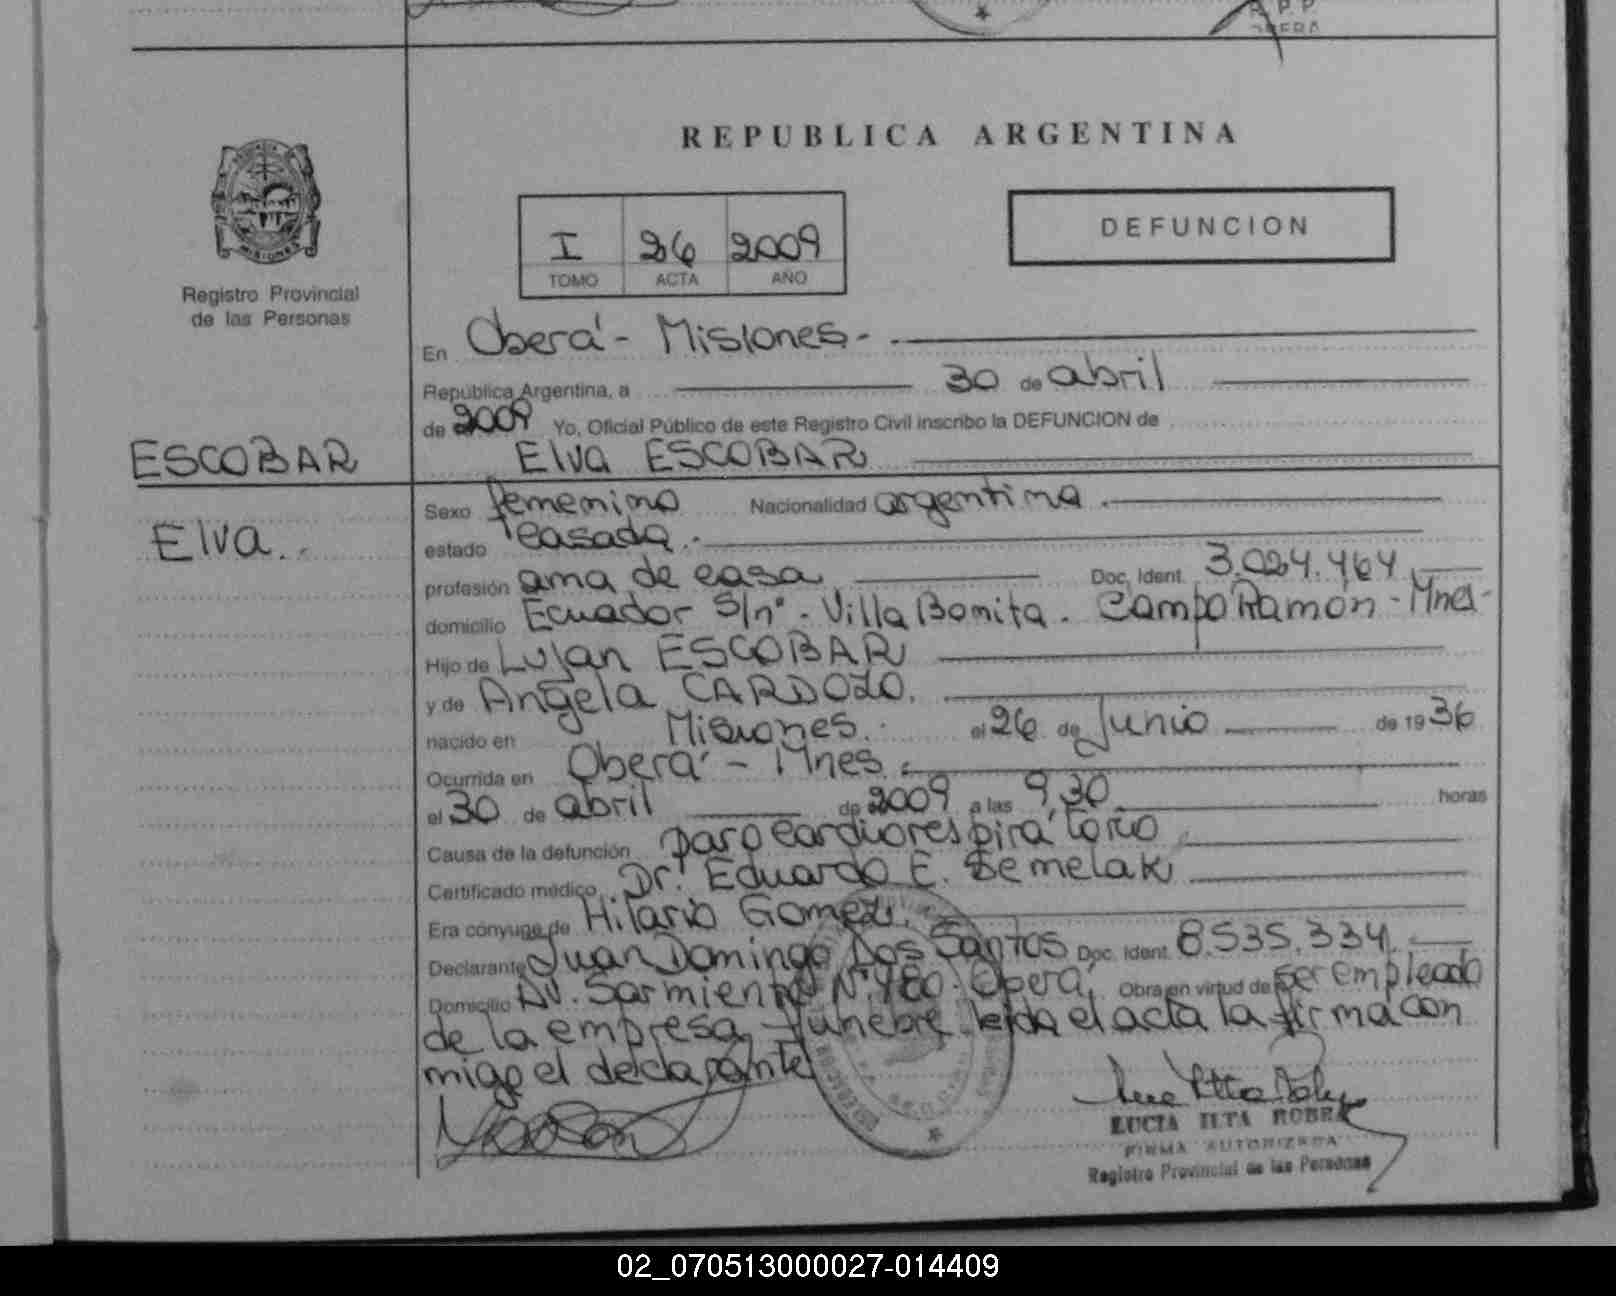 REPUBLICA ARGENTINA
DEFUNCION
I 26 2009
TOMO ACTA AÑO
MISIONES
Registro Provincial
de las Personas
En Oberá - Misiones -
República Argentina, a 30 de abril
de 2009 Yo, Oficial Público de este Registro Civil inscribo la DEFUNCION de
ESCOBAR
Elva ESCOBAR
Elva.
Sexo femenino Nacionalidad argentina.
estado casada.
profesión ama de casa Doc. Ident. 3.024.464
domicilio Ecuador S/nº - Villa Bonita. Campo Ramón - Mnes -
Hijo de Lujan ESCOBAR
y de Angela CARDOZO.
nacido en Misiones. el 26 de Junio de 1936
Ocurrida en Oberá - Mnes.
el 30 de abril de 2009 a las 9,30 horas
Causa de la defunción paro cardiorespiratorio
Certificado médico Dr. Eduardo E. Semelak
Era cónyuge de Hilario Gomez.
Declarante Juan Domingo Dos Santos Doc. Ident. 8.535.334
Domicilio Av. Sarmiento Nº 480 - Oberá Obra en virtud de ser empleado
de la empresa funebre leida el acta la firma con
migo el declarante
LUCIA ILTA
FIRMA AUTORIZADA
Registro Provincial de las Personas
02_070513000027-014409